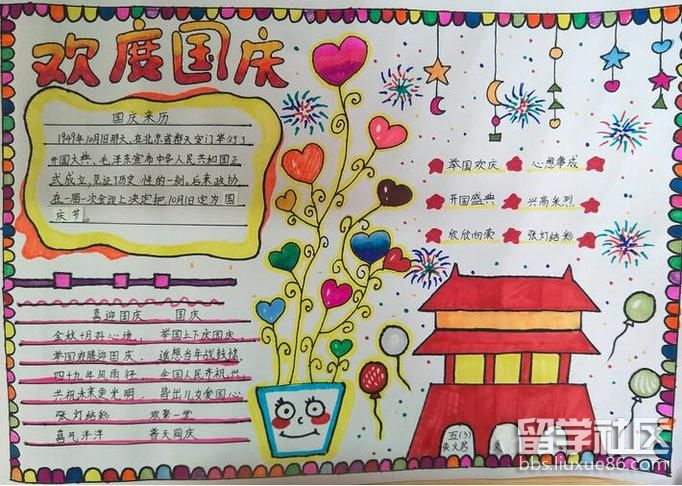 欢度国庆
国庆来历
1949年10月1日那天,在北京首都天安门举行了
开国大典,毛泽东宣布中华人民共和国正
式成立,见证了历史性的一刻。后来政协
在一届一次会议上决定把10月1日定为国
庆节。
举国欢庆 心想事成
开国盛典 兴高采烈
欣欣向荣 张灯结彩
喜迎国庆 国庆
金秋十月好心境, 举国上下庆国庆
举国欢腾迎国庆, 遥想当年战鼓
四十九年风雨怀 全国人民齐祝兴
共祝未来更光明, 皆出儿女爱国心
张灯结彩 欢聚一堂
喜气洋洋 普天同庆
五(3)
留学社区
bbs.liuxue86.com